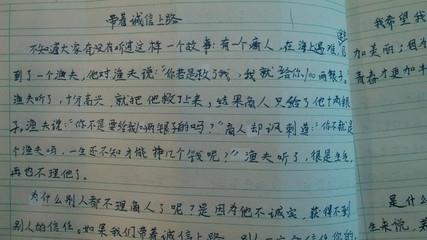 带着诚信上路
不知道大家有没有听过这样一个故事：有一个商人，在海上遇难，遇
到了一个渔夫，他对渔夫说："你若是救了我，我就给你100两银子。"
渔夫听了，十分高兴，就把他救了上来，结果商人只给了他十两银
子。渔夫说："你不是要给我100两银子的吗？"商人却讽刺道："你不就是
个渔夫吗，一生还不知才能挣几个钱呢？"渔夫听了，很是生气，
再也不理他了。
为什么别人都不理商人了呢？是因为他不诚实，获得不到
别人的信任。如果我们带着诚信上路，
我希望我
加美丽；因为
青春才更加丰
是什么
生来说，